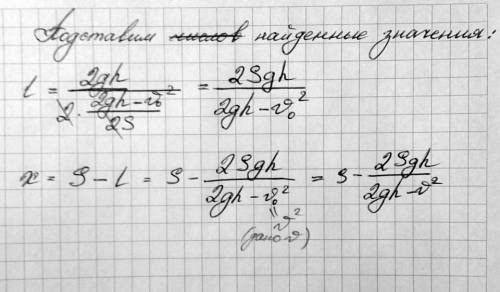 Подставим числов найденные значения:
l = 2gh / (2 · (2gh - v₀²) / 2S) = 2Sgh / (2gh - v₀²)
x = S - l = S - 2Sgh / (2gh - v₀²) = S - 2Sgh / (2gh - v²)
" v²
(дано v)